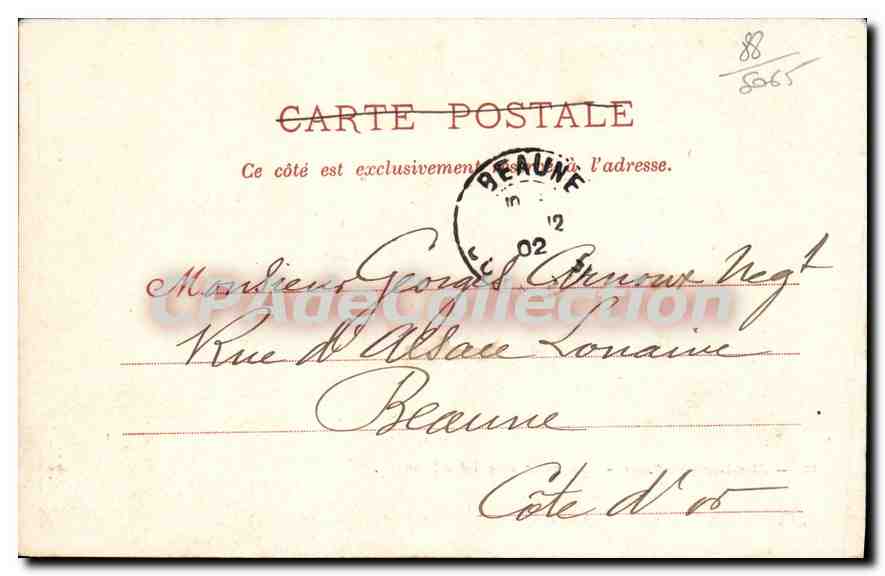 88
8065
CARTE POSTALE
Ce côté est exclusivement réservé à l'adresse.
BEAUNE
12
02
Monsieur Georges Arnoux Negt
CPAdeCollection
Rue d'Alsace Lorraine
Beaune
Côte d'or